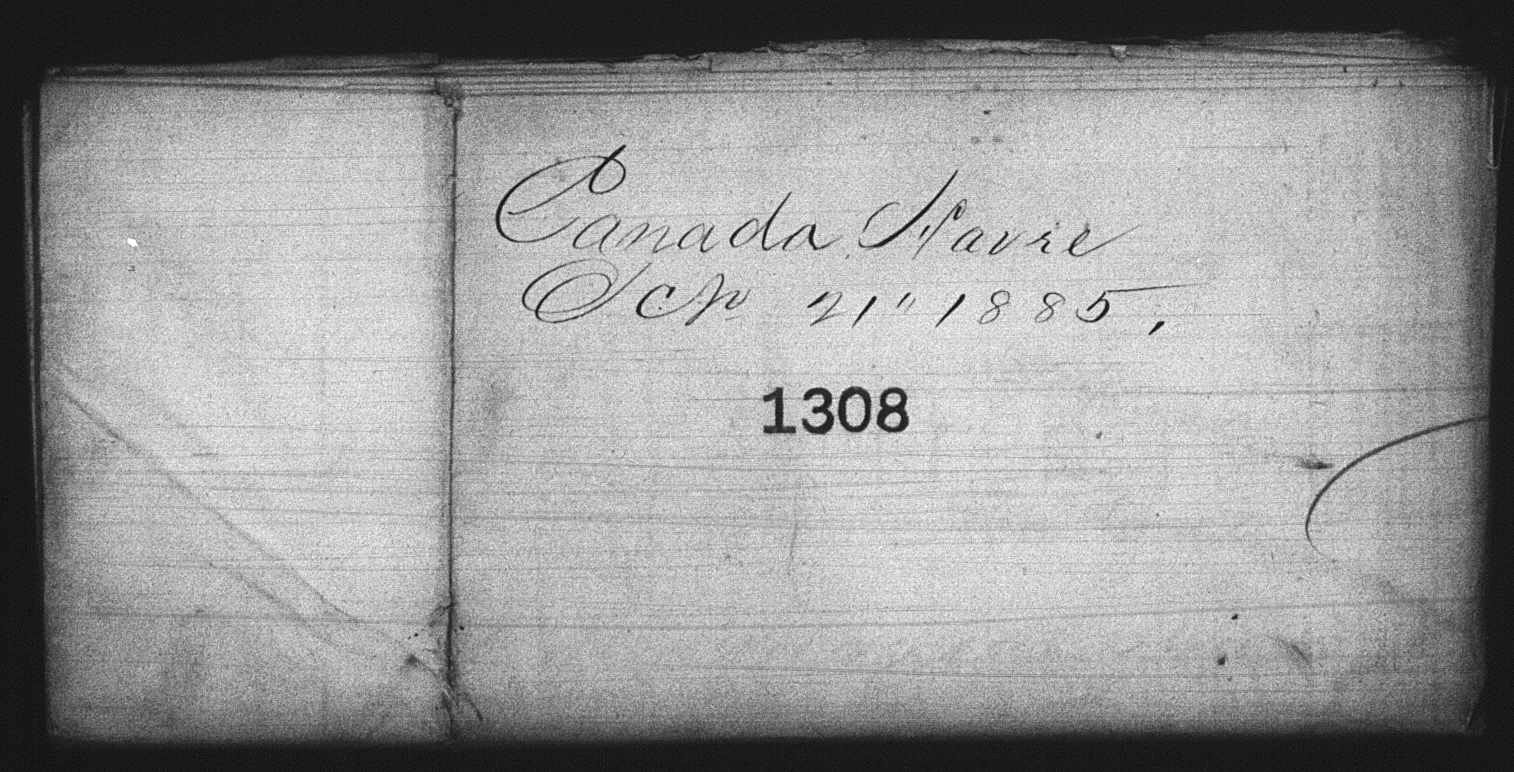 Canada, Havre
Sep 21" 1885,
1308